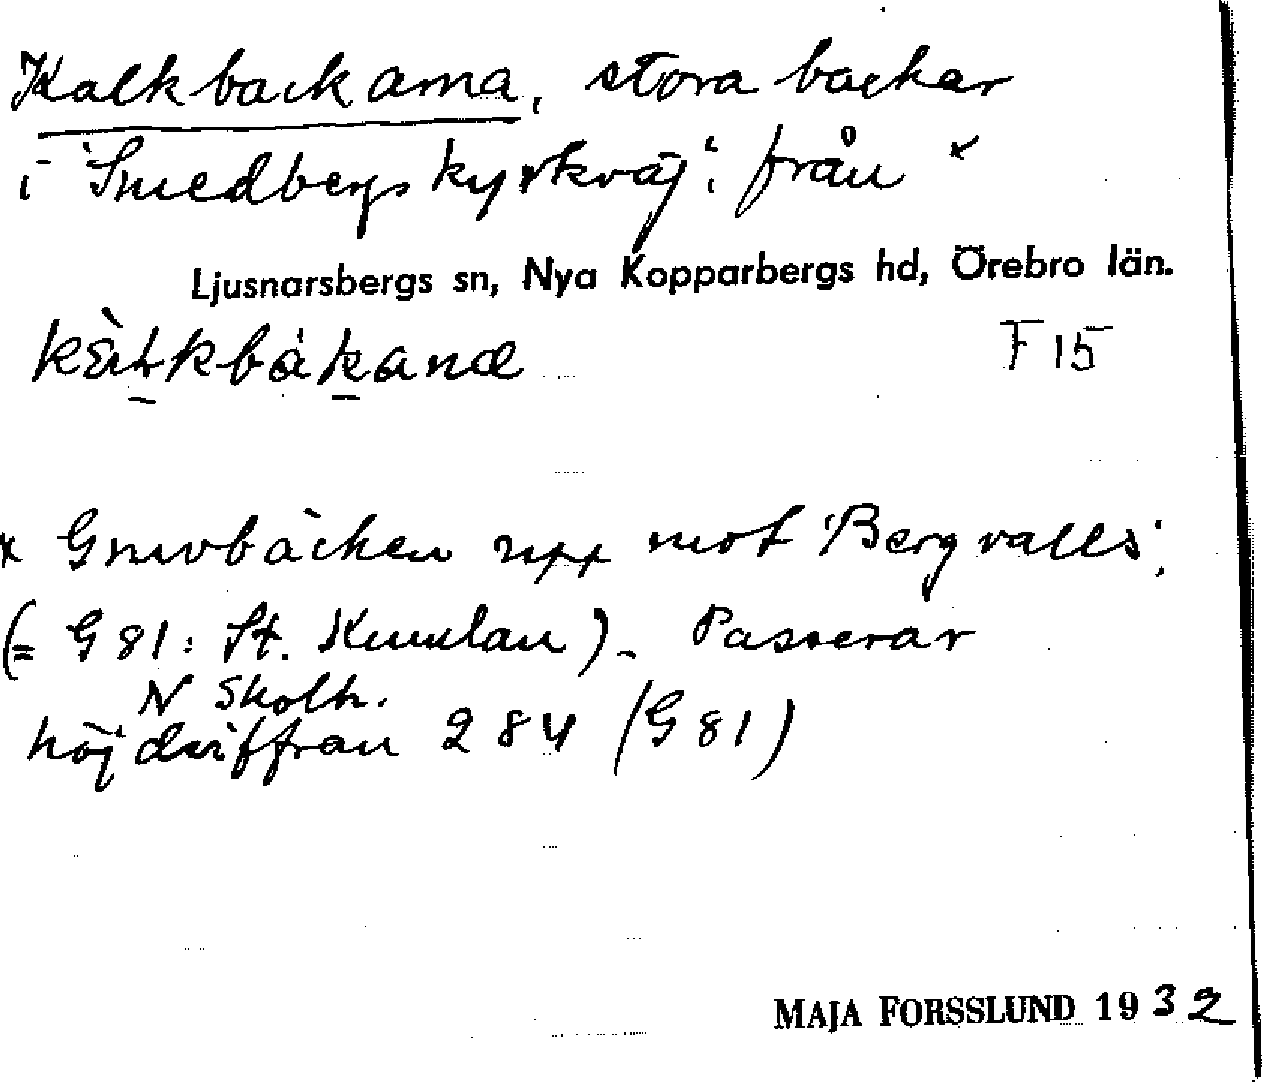 Kalkbackarna, stora backar
i "Smedbergs kyrkväj" från x
Ljusnarsbergs sn, Nya Kopparbergs hd, Örebro län.
F 15
x Gruvbäcken upp mot "Bergvalls"
(= G 81: St. Kumlan). Passerar
N Skolh.
höjdsiffran 284 (G 81)
MAJA FORSSLUND 1932